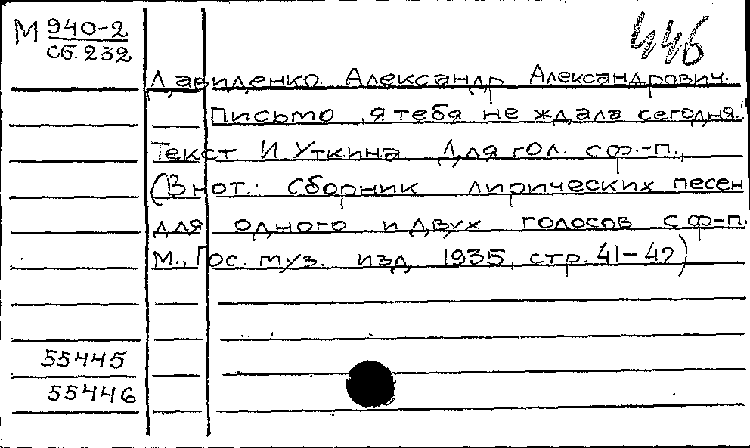 М 940-2
сб. 232
446
Давиденко Александр Александрович.
Письмо „Я тебя не ждала сегодня."
Текст И Уткина Для гол. с ф.-п.,
(В нот.: Сборник лирических песен
для одного и двух голосов с ф-п.
М., Гос. муз. изд, 1935, стр. 41-42)
55445
55446